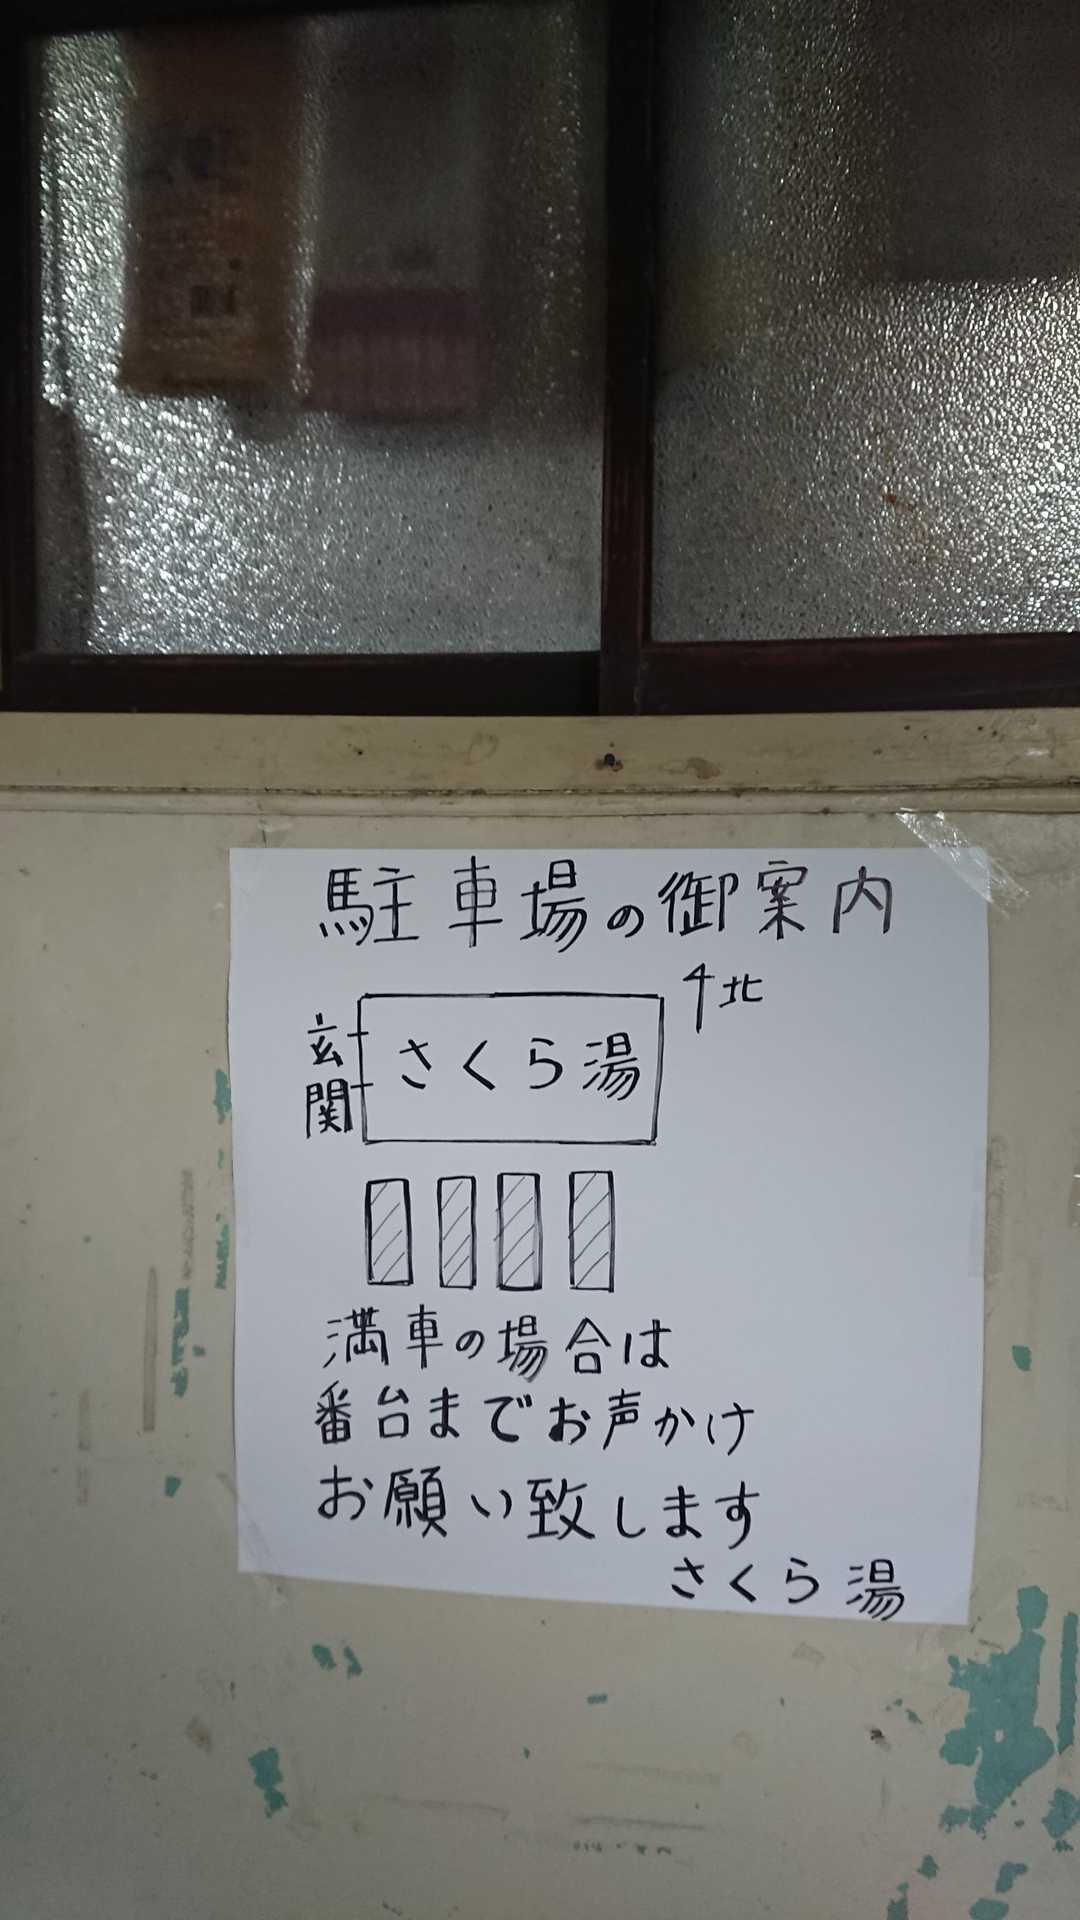 駐車場の御案内
北
玄関
さくら湯
満車の場合は
番台までお声かけ
お願い致します
さくら湯